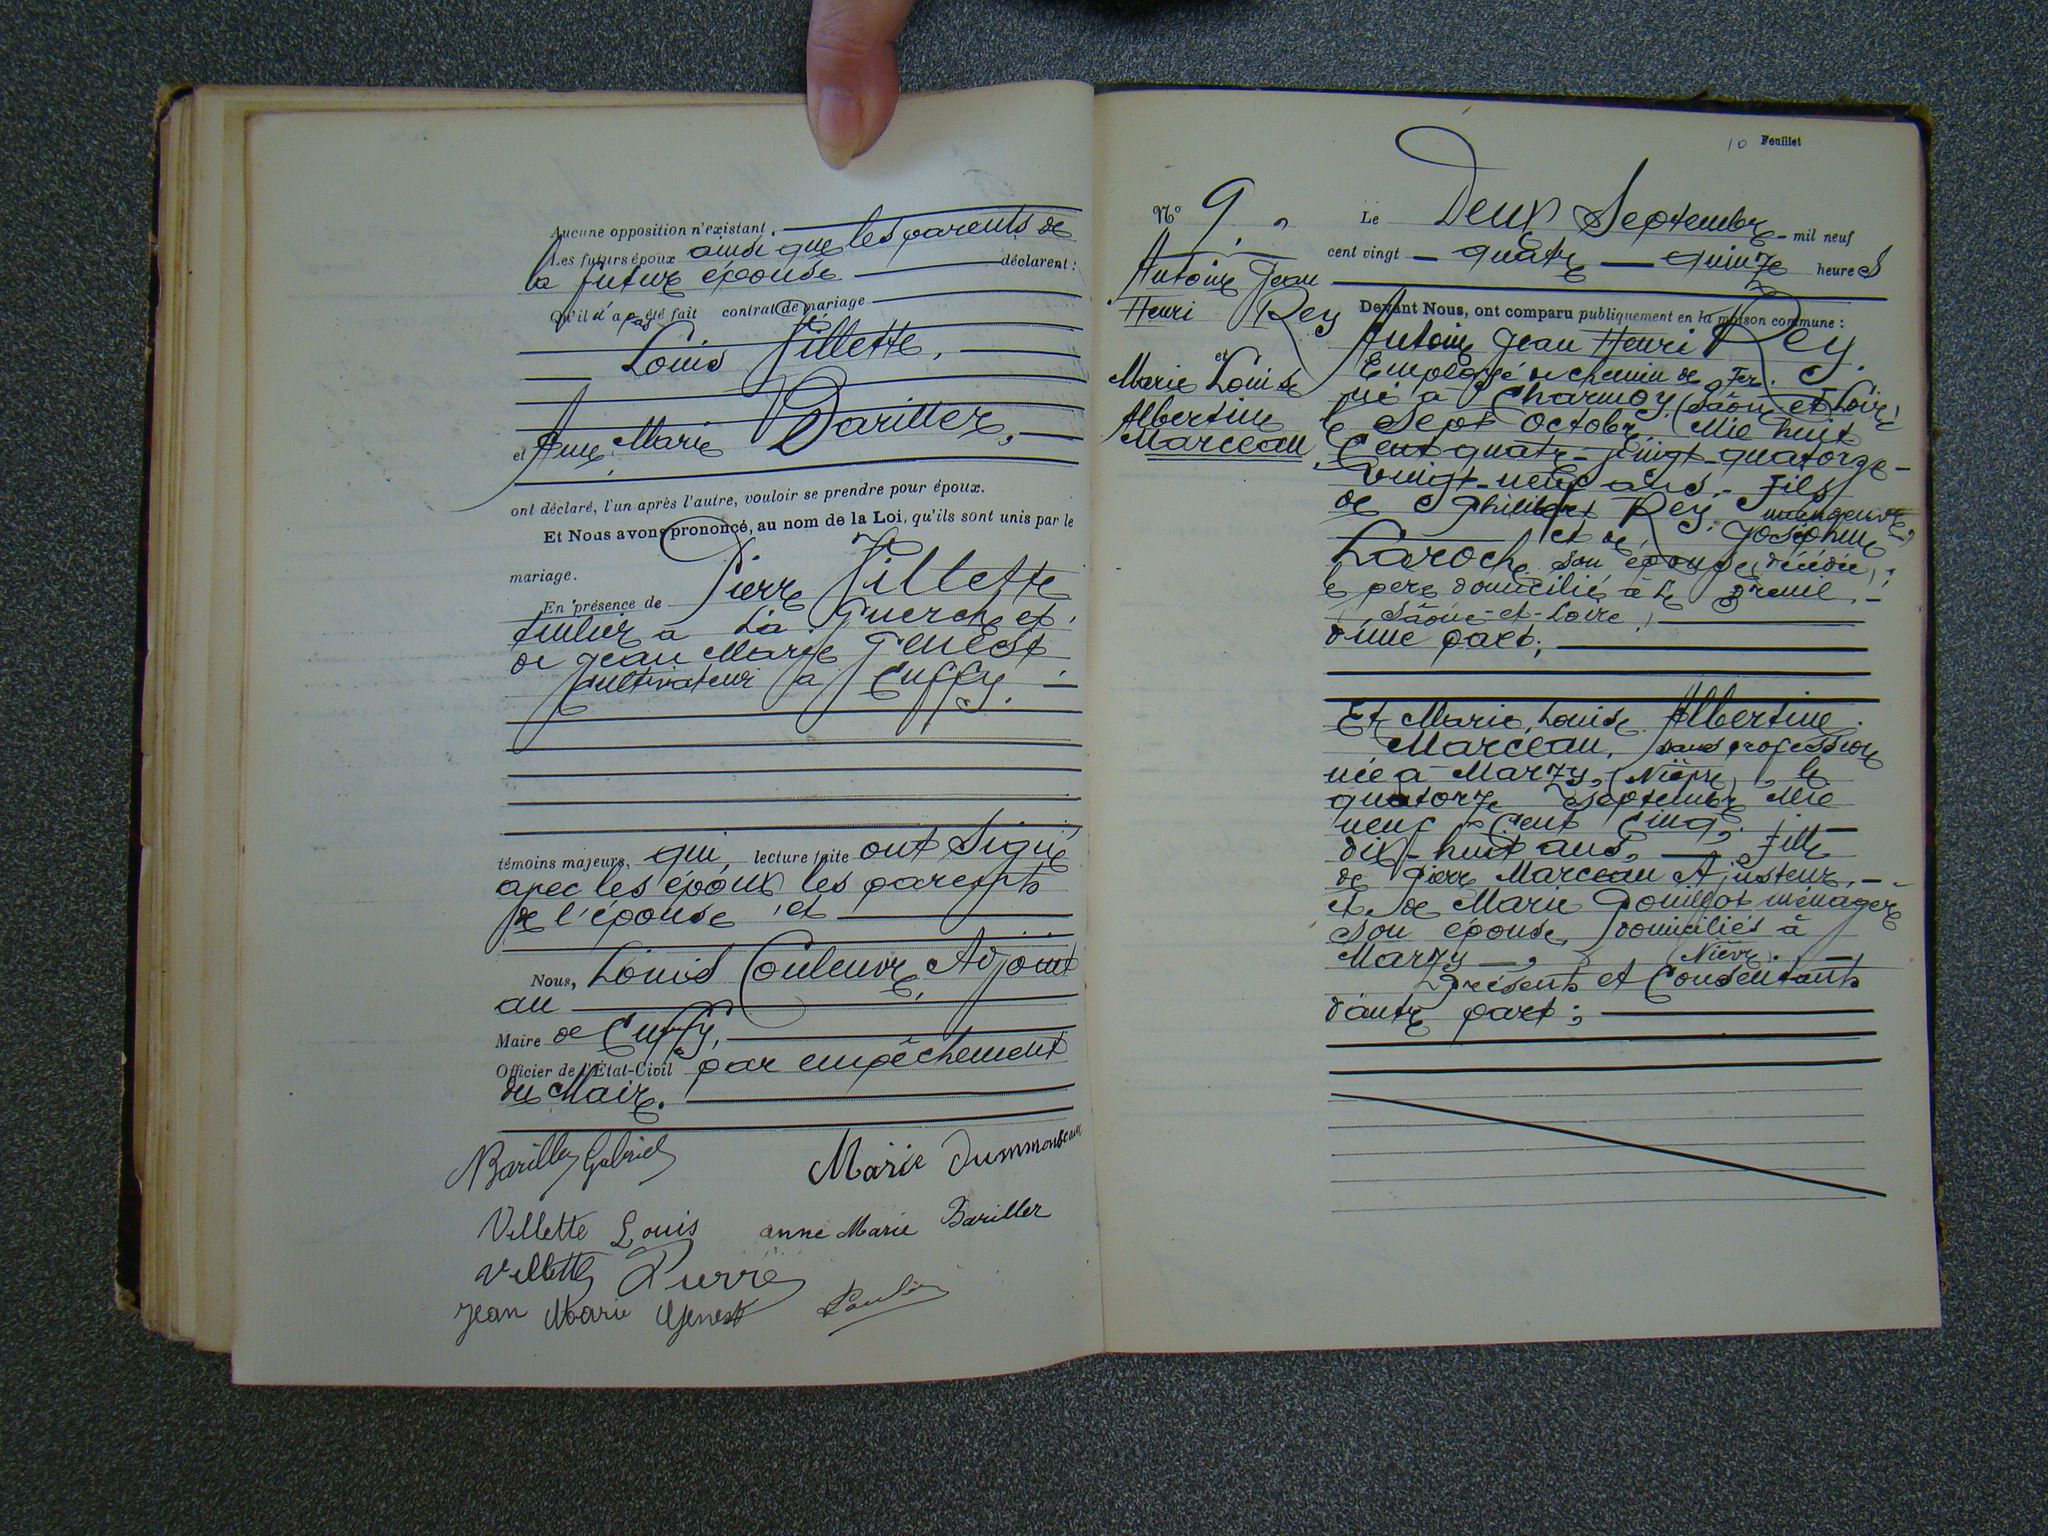 Aucune opposition n'existant.
Les futurs époux ainsi que les parents de
la future épouse déclarent :
Qu'il n'a pas été fait contrat de mariage
Louis Villette,
et Anne Marie Bariller,
ont déclaré, l'un après l'autre, vouloir se prendre pour époux.
Et Nous avons prononcé, au nom de la Loi, qu'ils sont unis par le
mariage.
En présence de Pierre Villette
à La Guerche et
de Jean Marie Genest
cultivateur à Cuffy.
témoins majeurs, qui, lecture faite ont signé
avec les époux les parents
de l'épouse et
Nous, Louis Couleuvre, Adjoint
au
Maire de Cuffy,
Officier de l'État-Civil par empêchement
du Maire.
Bariller Gabriel Marie
Villette Louis anne Marie Bariller
Villette Pierre
Jean Marie Genest
10 Feuillet
N° 9.
Antoine Jean
Henri Rey
et
Marie Louise
Albertine
Marceau
Le Deux Septembre mil neuf
cent vingt - quatre - quinze heures
Devant Nous, ont comparu publiquement en la maison commune :
Antoine Jean Henri Rey.
Employé de chemin de Fer.
né à Charmoy, (Saône et Loire)
le Sept Octobre Mil huit
Cent quatre-vingt-quatorze -
Vingt-neuf ans, - Fils
de Philibert Rey,
et de Joséphine
Laroche son épouse, décédée,
le père domicilié à Le Breuil, -
(Saône-et-Loire)
d'une part;
Et Marie, Louise Albertine
Marceau, sans profession
née à Marzy, (Nièvre), le
quatorze Septembre Mil
neuf Cent Cinq, -
dix-huit ans, - Fille
de Pierre Marceau Ajusteur, -
et de Marie ménagère
son épouse, domiciliés à
Marzy -, (Nièvre). -
Présents et Consentants
d'autre part;